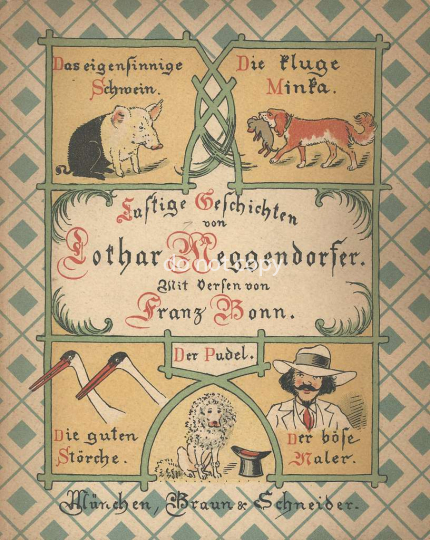 Das eigensinnige
Schwein.
Die kluge
Minka.
Lustige Geschichten
von
Lothar Meggendorfer.
Mit Versen von
Franz Bonn.
Der Pudel.
Die guten
Störche.
Der böse
Maler.
München, Braun & Schneider.